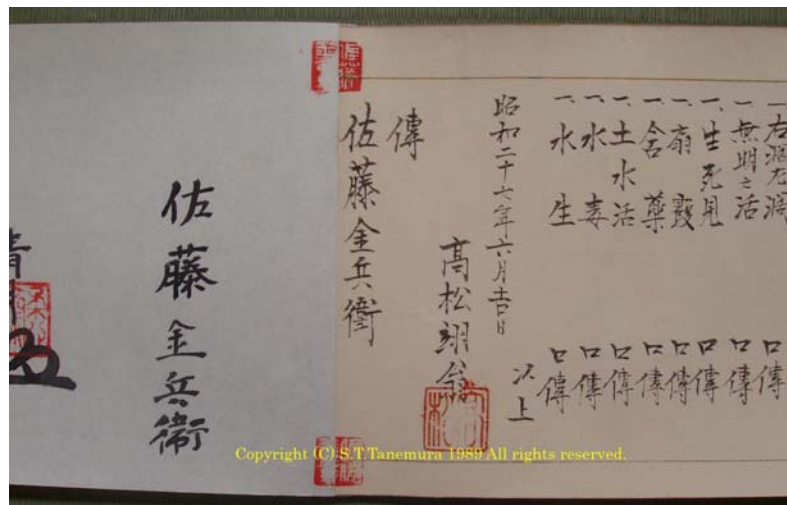 一無明之活 口傳
一、生死見 口傳
一、扇 口傳
一、含藥 口傳
一、土水活 口傳
一、水毒 口傳
一、水生 口傳
以上
昭和二十七年六月吉日
髙松翊翁
傳
佐藤金兵衛
佐藤金兵衛
Copyright (C) S.T.Tanemura 1989 All rights reserved.